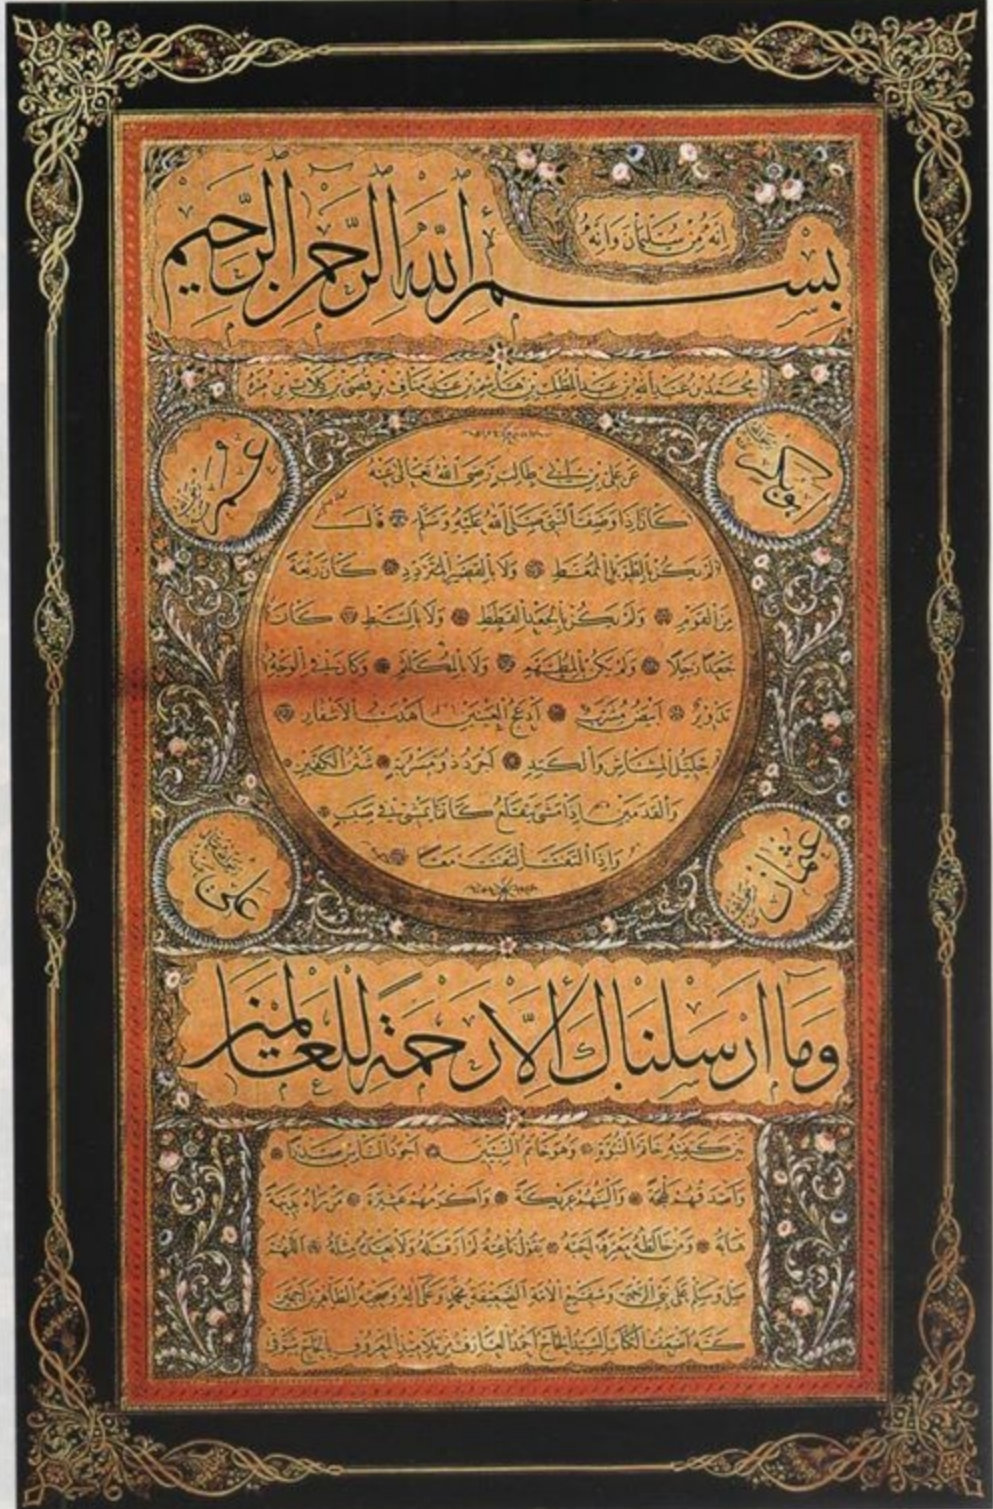 انه من سليمان وانه
بسم الله الرحمن الرحيم
محمد بن عبد الله بن عبد المطلب بن هاشم بن عبد مناف بن قصي بن كلاب بن مره
ابو بكر
عمر
عن علي بن ابي طالب رضى الله تعالى عنه
كان اذا وصف النبي صلى الله عليه وسلم قال
لم يكن بالطويل الممغط ولا بالقصير المتردد كان ربعة
من القوم ولم يكن بالجعد القطط ولا بالسبط كان
جعدا رجلا ولم يكن بالمطهم ولا بالمكلثم وكان في الوجه
تدوير ابيض مشرب ادعج العينين اهدب الاشفار
جليل المشاش والكتد اجرد ذو مسربة شثن الكفين
والقدمين اذا مشى يتقلع كانما يمشي في صبب
واذا التفت التفت معا
عثمان
علي
وما ارسلناك الا رحمة للعالمين
بين كتفيه خاتم النبوة وهو خاتم النبيين اجود الناس صدرا
واصدقهم لهجة والينهم عريكة واكرمهم عشيرة من راه بديهة
هابه ومن خالطه معرفة احبه يقول ناعته لم ار قبله ولا بعده مثله اللهم
صل وسلم على نبي الرحمة وشفيع الامة محمد وعلى اله وصحبه الطاهرين اجمعين
كتبه اضعف الكتاب السيد الحاج احمد العارف من تلاميذ المعروف بالحاج شوقي